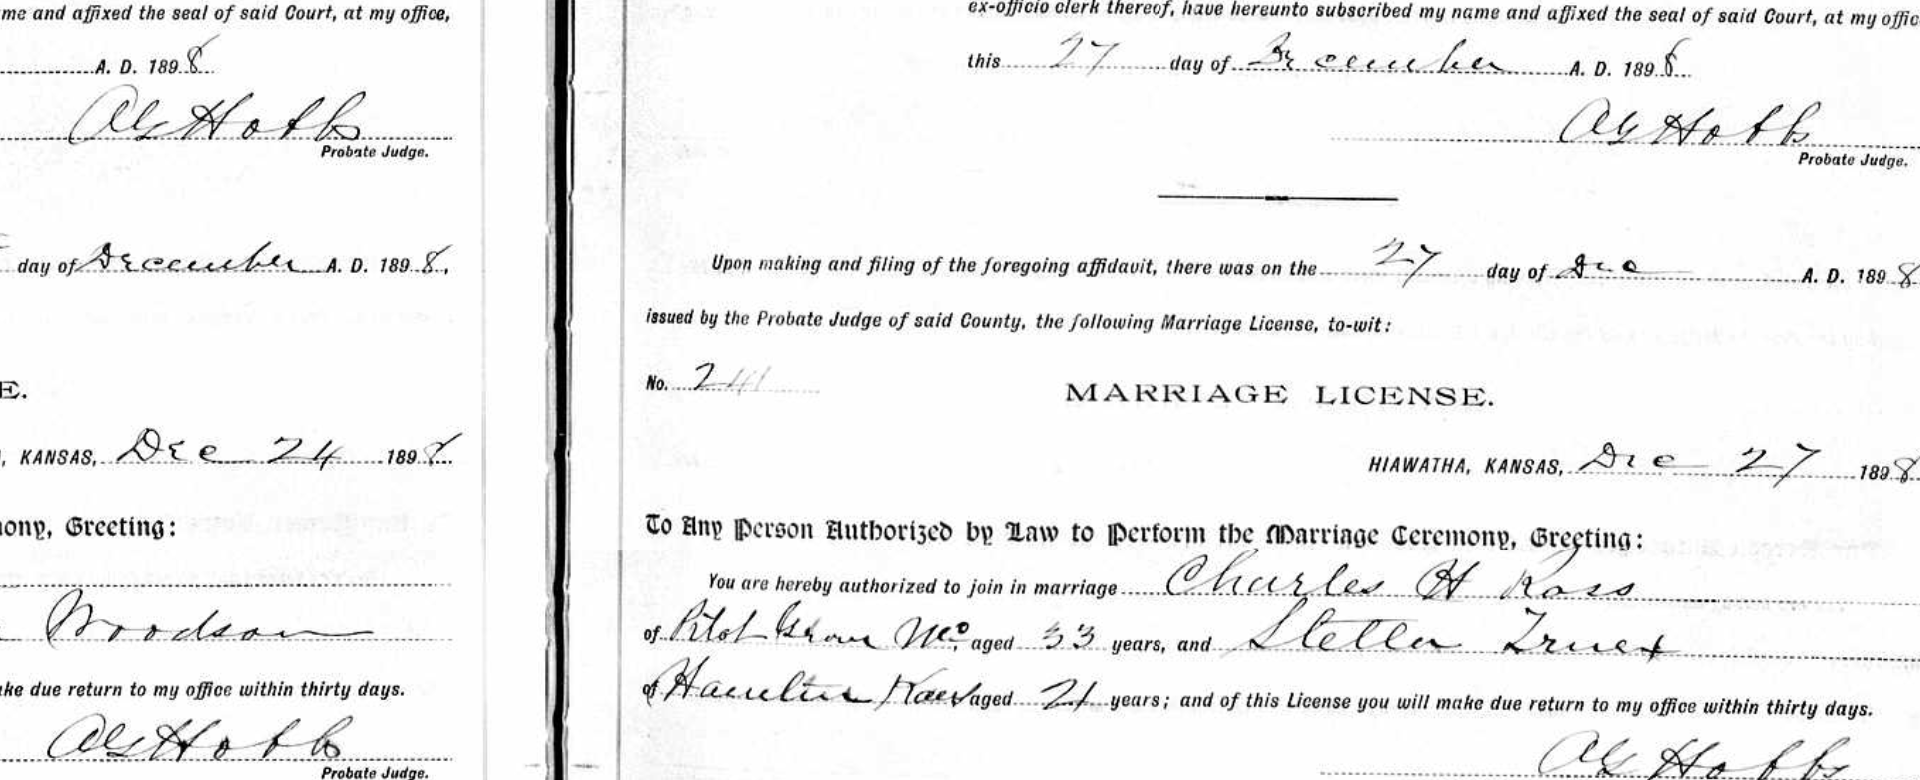 me and affixed the seal of said Court, at my office,
A. D. 1898
AG Hobbs
Probate Judge.
day of December A. D. 1898,
E.
, KANSAS, Dec 24 1898
ony, Greeting:
Woodson
ke due return to my office within thirty days.
AG Hobbs
Probate Judge.
ex-officio clerk thereof, have hereunto subscribed my name and affixed the seal of said Court, at my offic
this 27 day of December A. D. 1898
AG Hobbs
Probate Judge.
Upon making and filing of the foregoing affidavit, there was on the 27 day of Dec A. D. 1898
issued by the Probate Judge of said County, the following Marriage License, to-wit:
No. 241
MARRIAGE LICENSE.
HIAWATHA, KANSAS, Dec 27 1898
To Any Person Authorized by Law to Perform the Marriage Ceremony, Greeting:
You are hereby authorized to join in marriage Charles H Ross
of Pilot Grove Mo, aged 33 years, and Stella Truex
of Hamlin Kans aged 21 years; and of this License you will make due return to my office within thirty days.
AG Hobbs